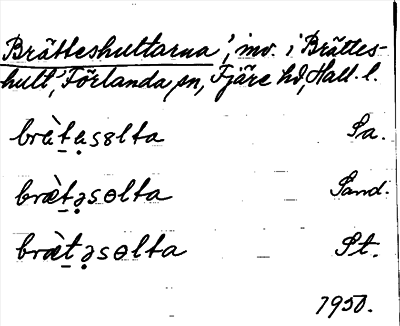 Brätteshultarna', inv. i Brättes-
hult, Förlanda sn, Fjäre hd, Hall. l.
bræ̀t̠ə̣sɵlta Sa.
bræ̀t̠ə̣sɵlta Sand.
bræ̀t̠ə̣sɵlta St.
1950.